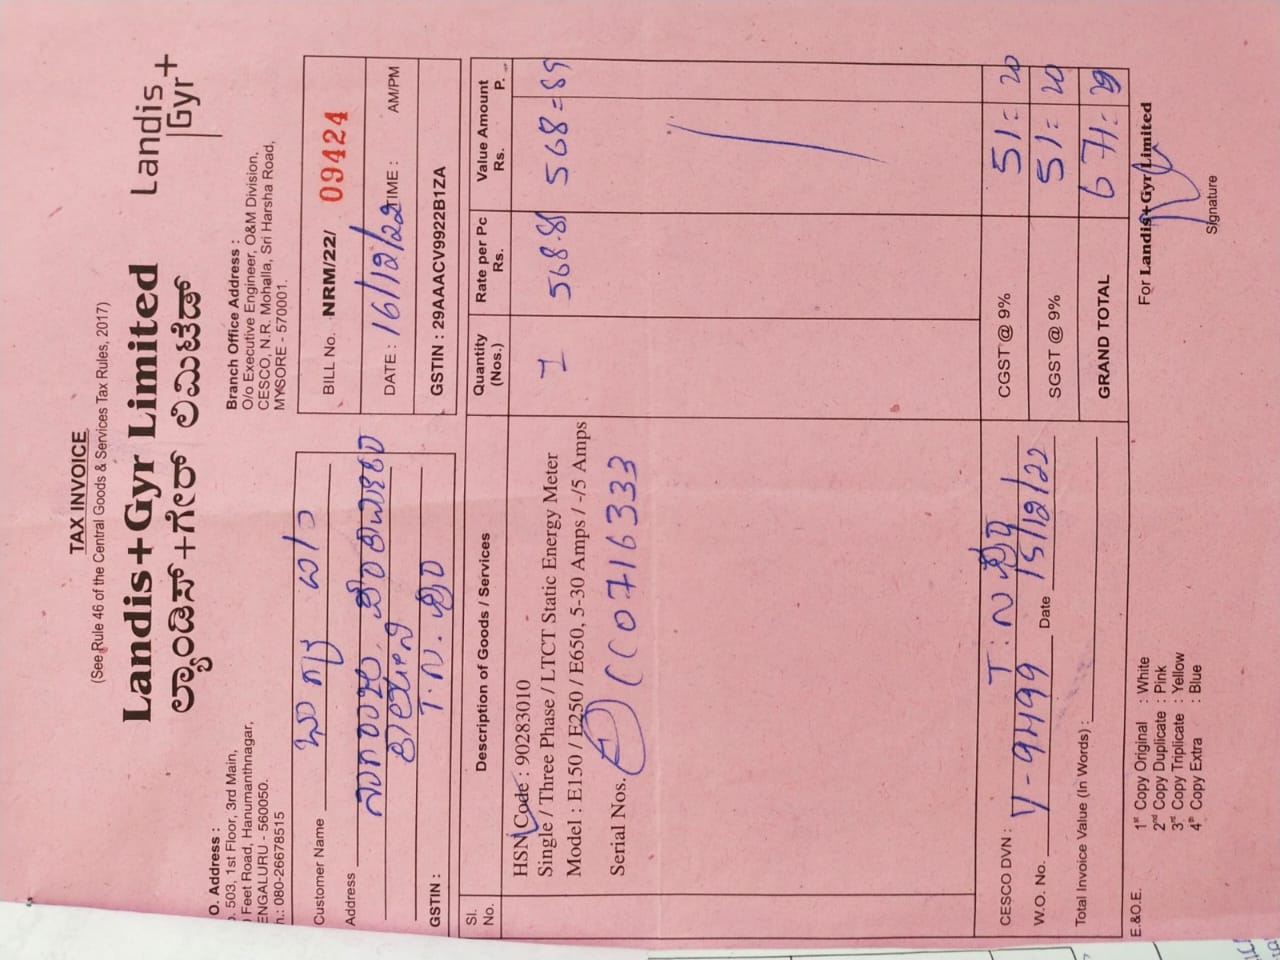 TAX INVOICE
(See Rule 46 of the Central Goods & Services Tax Rules, 2017)
Landis+Gyr Limited
ಲ್ಯಾಂಡಿಸ್+ಗೇರ್ ಲಿಮಿಟೆಡ್
Landis
Gyr+
O. Address :
503, 1st Floor, 3rd Main,
Feet Road, Hanumanthnagar,
ENGALURU - 560050.
: 080-26678515
Branch Office Address :
O/o Executive Engineer, O&M Division,
CESCO, N.R. Mohalla, Sri Harsha Road,
MYSORE - 570001.
Customer Name
Address
GSTIN :
BILL No. NRM/22/ 09424
DATE : 16/12/22 TIME : AM/PM
GSTIN : 29AAACV9922B1ZA
Sl. No. Description of Goods / Services Quantity (Nos.) Rate per Pc Rs. Value Amount Rs. P.
HSN Code : 90283010
Single / Three Phase / LTCT Static Energy Meter 1 568=89
Model : E150 / E250 / E650, 5-30 Amps / -/5 Amps
Serial Nos. CC0716333
CESCO DVN : CGST @ 9% 51=20
W.O. No. Date 15/12/22 SGST @ 9% 51=20
Total Invoice Value (In Words) : GRAND TOTAL 671=29
E.&O.E. 1st Copy Original : White
2nd Copy Duplicate : Pink
3rd Copy Triplicate : Yellow
4th Copy Extra : Blue
For Landis+Gyr Limited
Signature